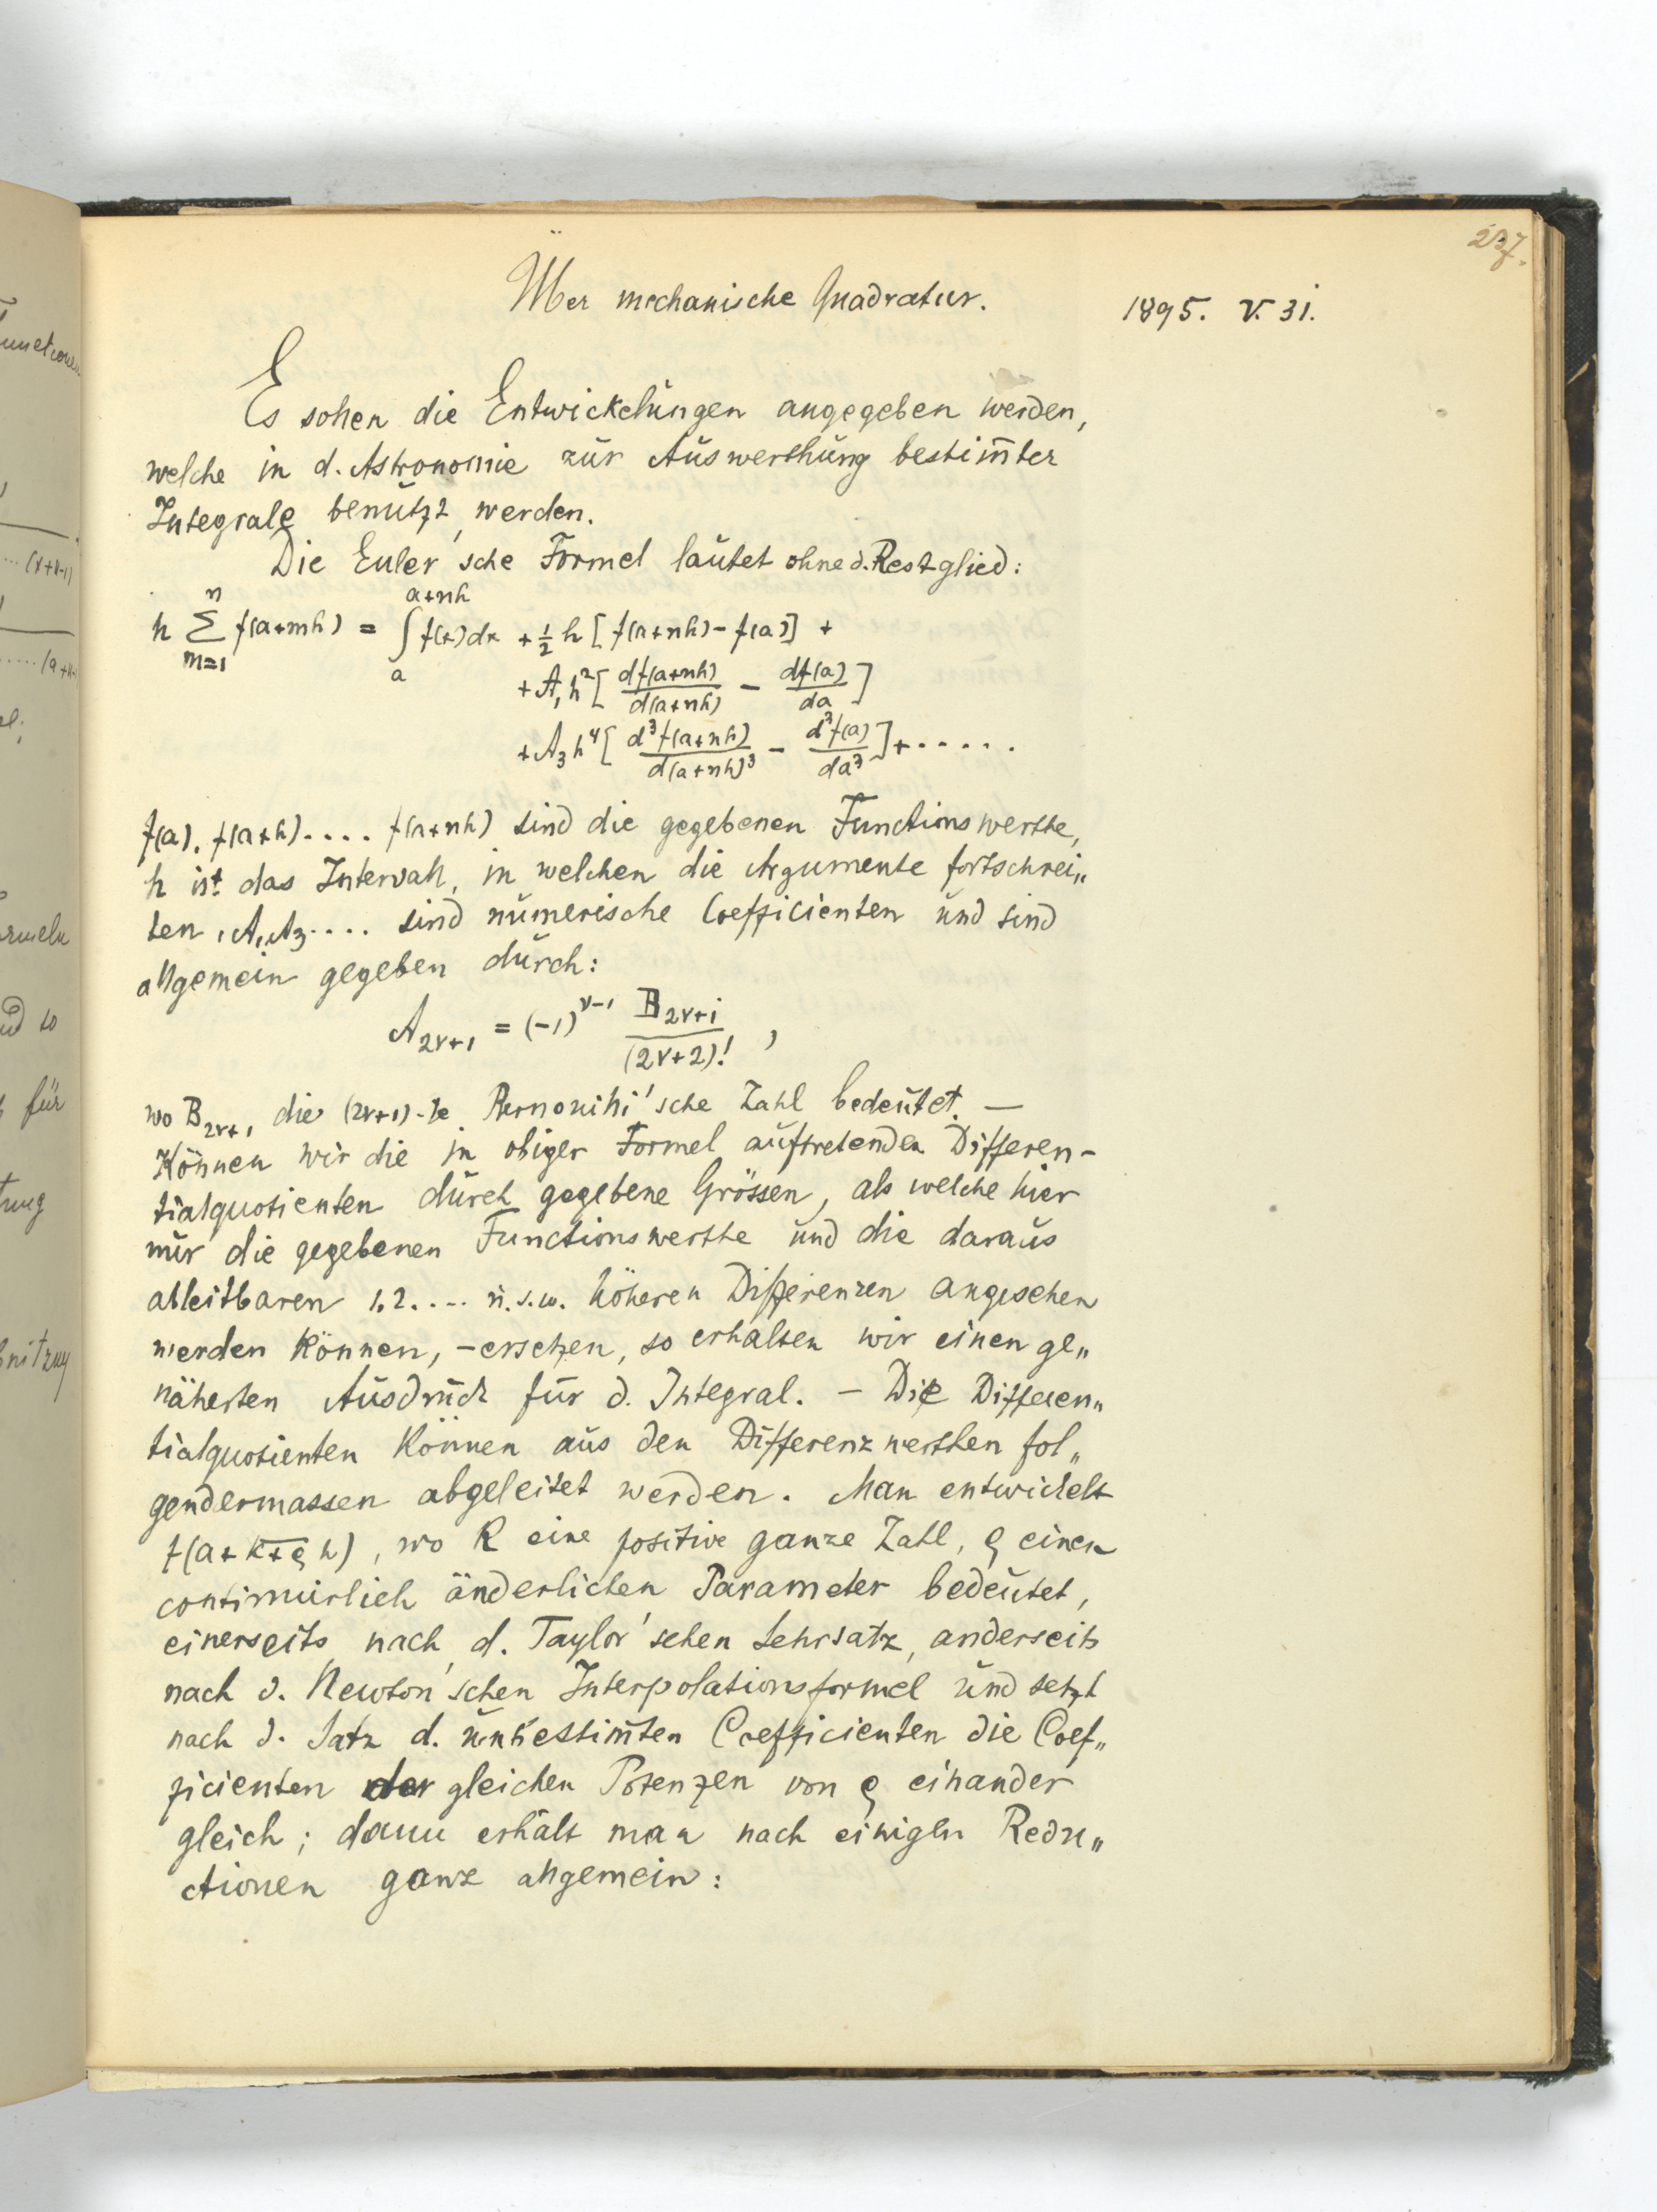 237.
Über mechanische Quadratur.
1895. V. 31.
Es sollen die Entwickelungen angegeben werden,
welche in d. Astronomie zur Auswerthung bestim̅ter
Integrale benützt werden.
Die Euler'sche Formel lautet ohne d. Restglied:
h \sum_{m=1}^{n} f(a+mh) = \int_{a}^{a+nh} f(x)dx + \frac{1}{2} h [f(a+nh) - f(a)] +
+ A_1 h^2 [\frac{df(a+nh)}{d(a+nh)} - \frac{df(a)}{da}]
+ A_3 h^4 [\frac{d^3f(a+nh)}{d(a+nh)^3} - \frac{d^3f(a)}{da^3}] + .....
f(a), f(a+h).... f(a+nh) sind die gegebenen Functionswerthe,
h ist das Intervall, in welchen die Argumente fortschrei„
ten, A_1, A_3.... sind numerische Coefficienten und sind
allgemein gegeben durch:
A_{2ν+1} = (-1)^{ν-1} \frac{B_{2ν+1}}{(2ν+2)!} ,
wo B_{2ν+1} die (2ν+1)-te Bernoulli'sche Zahl bedeutet. —
Können wir die in obiger Formel auftretenden Differen-
tialquotienten durch gegebene Grössen, als welche hier
nur die gegebenen Functionswerthe und die daraus
ableitbaren 1, 2.... u.s.w. höheren Differenzen angesehen
werden können, – ersetzen, so erhalten wir einen ge„
näherten Ausdruck für d. Integral. – Die Differen„
tialquotienten können aus den Differenzwerthen fol„
gendermassen abgeleitet werden. Man entwickelt
f(a+\overline{k+ρ} h), wo k eine positive ganze Zahl, ρ einen
continuirlich änderlichen Parameter bedeutet,
einerseits nach d. Taylor'schen Lehrsatz, anderseits
nach d. Newton'schen Interpolationsformel und setzt
nach d. Satz d. unbestim̅ten Coefficienten die Coef„
ficienten der gleichen Potenzen von ρ einander
gleich; dann erhält man nach einigen Redu„
ctionen ganz allgemein: